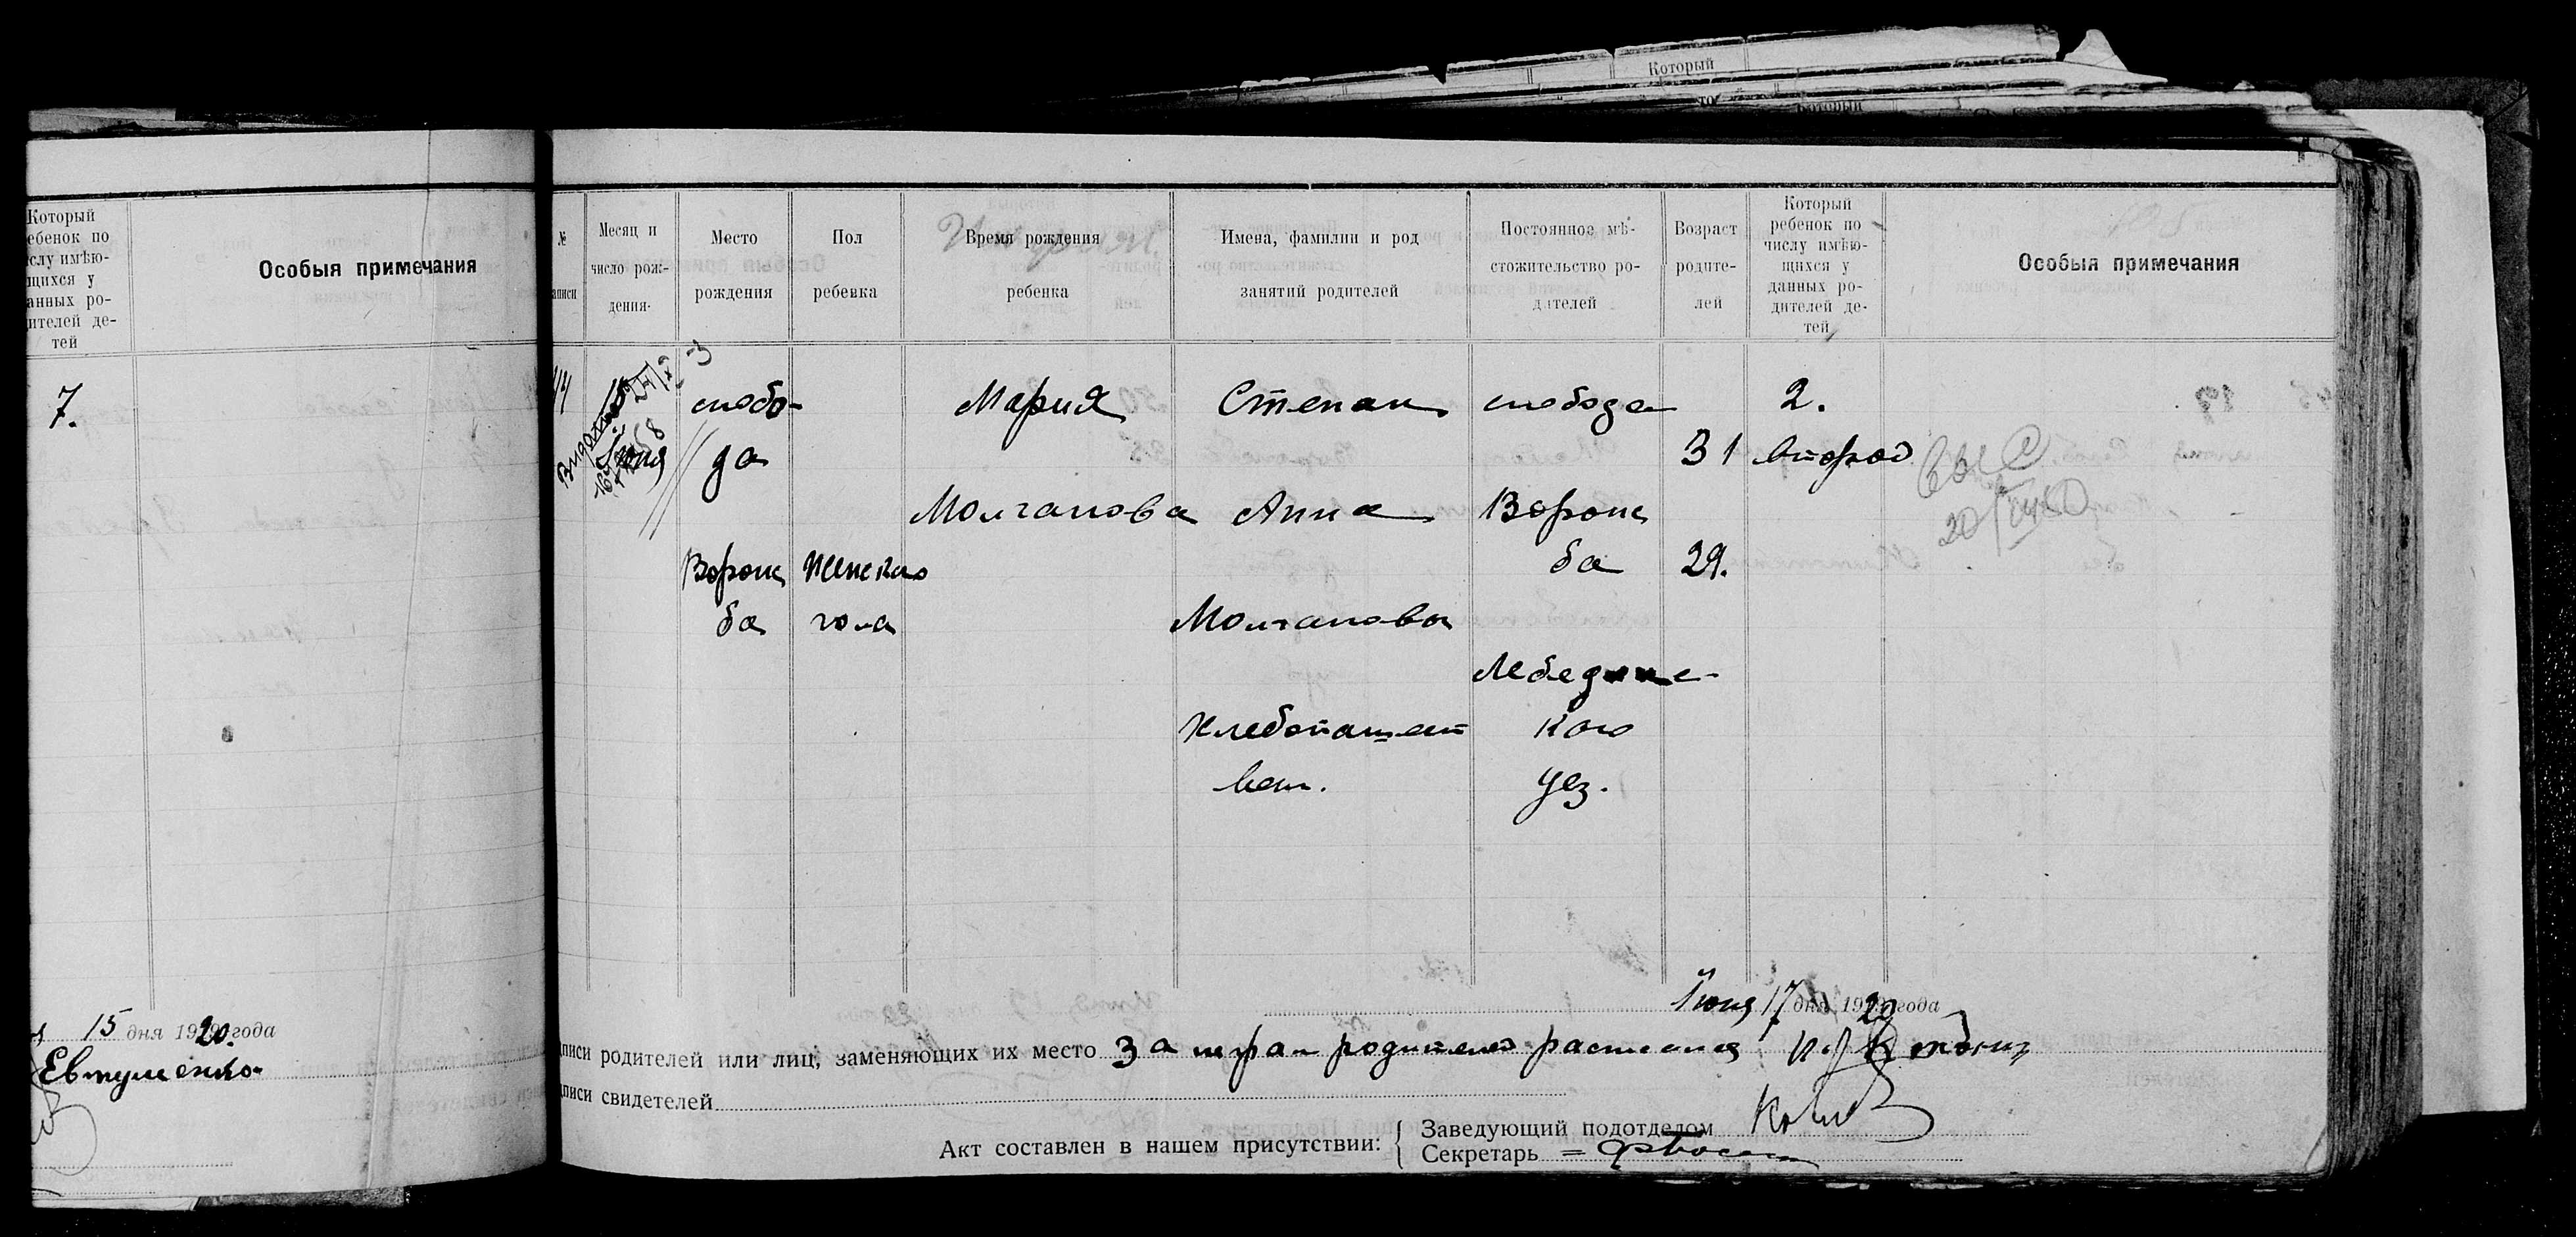 Который
Который
Который
ебенок по
слу имѣю-
щихся у
анных ро-
ителей де-
тей
Особыя примечания
7.
15 дня 1920. года
Евтушенко
№
аписи
Месяц и
число рож-
дения.
Место
рождения
Пол
ребенка
Время рождения
ребенка
Имена, фамилии и род
занятий родителей
Постоянное мѣ-
стожительство ро-
дителей
Возраст
родите-
лей
Который
ребенок по
числу имѣю-
щихся у
данных ро-
дителей де-
тей
Особыя примечания
44
Июня
слобо-
да
Ворож
ба
женскаго
пола
Мария
Молчанова
Степан
Анна
Молчановы
Хлебопашест
вом.
слобода
Ворож
ба
Лебединс-
кого
уез.
31
29.
2.
второй
Июня 17 дня 1920 года
дписи родителей или лиц, заменяющих их место За неграм родителей расписался
дписи свидетелей
Акт составлен в нашем присутствии:
Заведующий подотделом
Секретарь